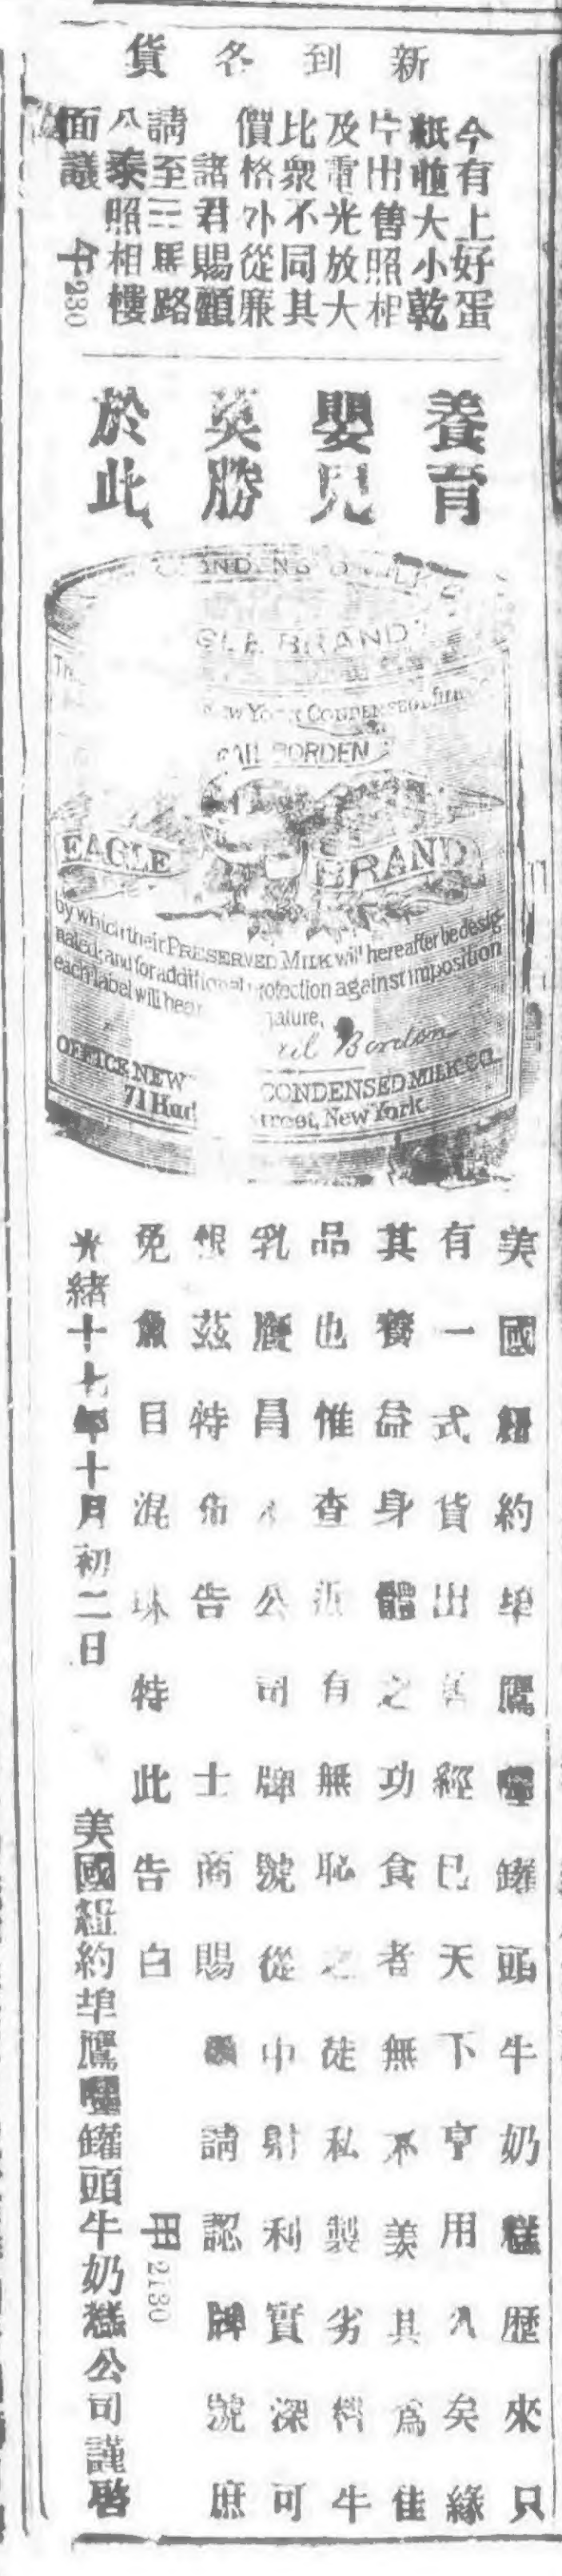 新到名貨
今有上好蛋
紙並大小乾
片出售照相
及電光放大
比衆不同其
價格外從廉
諸君賜顧
請至三馬路
公泰照相樓
面議
午230
養育
嬰兒
莫勝
於此
CONDENSED MILK
EAGLE BRAND
NEW YORK CONDENSED MILK
GAIL BORDEN
EAGLE BRAND
by which their PRESERVED MILK will hereafter be desig-
nated; and for additional protection against imposition
each label will bear nature,
Gail Borden
OFFICE NEW CONDENSED MILK CO.
71 Hud Street, New York
美國紐約埠鷹嘜罐頭牛奶糕歷來只
有一式貨出售經已天下亨用久矣緣
其養益身體之功食者無不美其爲佳
品也惟查近有無恥之徒私製劣料牛
乳混冒本公司牌號從中射利實深可
恨茲特佈告 士商賜顧請認牌號庶
免魚目混珠特此告白
甲2180
光緒十七年十月初二日 美國紐約埠鷹嘜罐頭牛奶糕公司謹啓